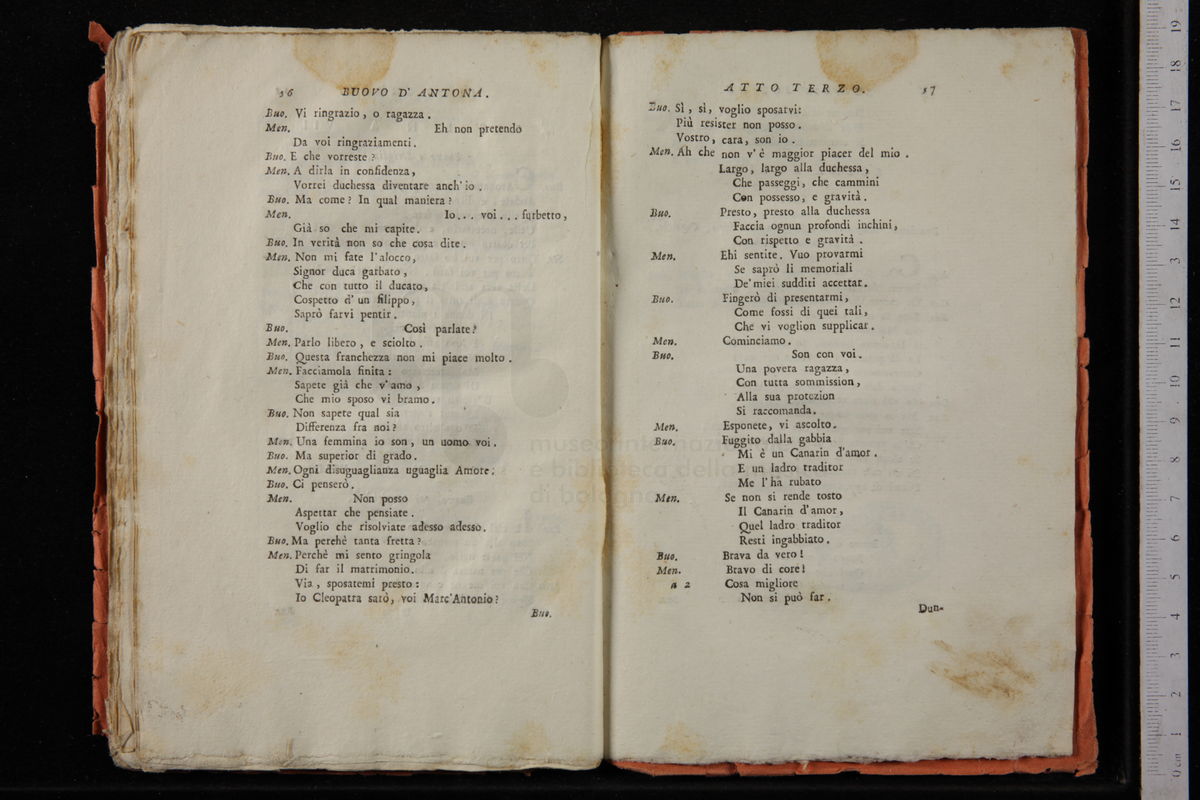 56 BUOVO D' ANTONA.
Buo. Vi ringrazio, o ragazza.
Men. Eh non pretendo
Da voi ringraziamenti.
Buo. E che vorreste?
Men. A dirla in confidenza,
Vorrei duchessa diventare anch' io.
Buo. Ma come? In qual maniera?
Men. Io... voi... furbetto,
Già so che mi capite.
Buo. In verità non so che cosa dite.
Men. Non mi fate l'alocco,
Signor duca garbato,
Che con tutto il ducato,
Cospetto d' un filippo,
Saprò farvi pentir.
Buo. Così parlate?
Men. Parlo libero, e sciolto.
Buo. Questa franchezza non mi piace molto.
Men. Facciamola finita:
Sapete già che v' amo,
Che mio sposo vi bramo.
Buo. Non sapete qual sia
Differenza fra noi?
Men. Una femmina io son, un uomo voi.
Buo. Ma superior di grado.
Men. Ogni disuguaglianza uguaglia Amore.
Buo. Ci penserò.
Men. Non posso
Aspettar che pensiate.
Voglio che risolviate adesso adesso.
Buo. Ma perchè tanta fretta?
Men. Perchè mi sento gringola
Di far il matrimonio.
Via, sposatemi presto:
Io Cleopatra sarò, voi Marc'Antonio?
Buo.
ATTO TERZO. 57
Buo. Sì, sì, voglio sposarvi:
Più resister non posso.
Vostro, cara, son io.
Men. Ah che non v' è maggior piacer del mio.
Largo, largo alla duchessa,
Che passeggi, che cammini
Con possesso, e gravità.
Buo. Presto, presto alla duchessa
Faccia ognun profondi inchini,
Con rispetto e gravità.
Men. Ehi sentite. Vuo provarmi
Se saprò li memoriali
De' miei sudditi accettar.
Buo. Fingerò di presentarmi,
Come fossi di quei tali,
Che vi voglion supplicar.
Men. Cominciamo.
Buo. Son con voi.
Una povera ragazza,
Con tutta sommission,
Alla sua protezion
Si raccomanda.
Men. Esponete, vi ascolto.
Buo. Fuggito dalla gabbia
Mi è un Canarin d'amor.
E un ladro traditor
Me l' ha rubato
Men. Se non si rende tosto
Il Canarin d' amor,
Quel ladro traditor
Resti ingabbiato.
Buo. Brava da vero!
Men. Bravo di core!
a 2 Cosa migliore
Non si può far.
Dun-